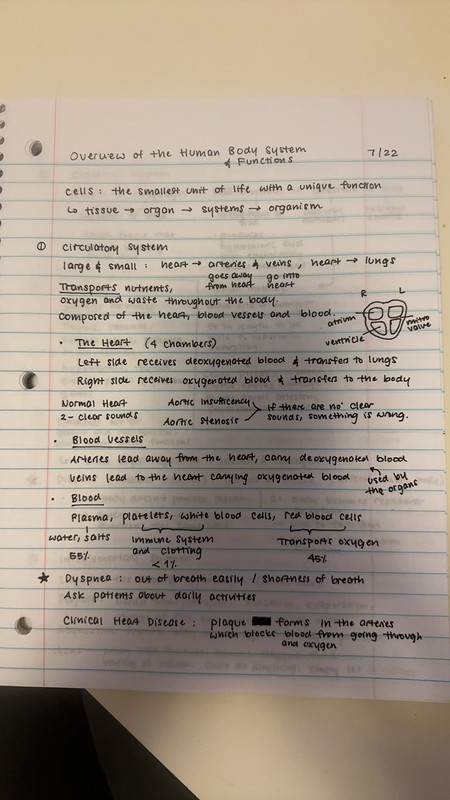 Overview of the Human Body System
& Functions
7/22
Cells : the smallest unit of life with a unique function
↳ tissue → organ → systems → organism
① Circulatory System
large & small : heart → arteries & veins , heart → lungs
goes away go into
from heart heart
Transports nutrients,
oxygen and waste throughout the body.
Composed of the heart, blood vessels and blood.
R L
atrium
mitro
valve
ventricle
• The Heart (4 chambers)
Left side receives deoxygenated blood & transfers to lungs
Right side receives oxygenated blood & transfers to the body
Normal Heart
2 - clear sounds
Aortic Insufficiency
Aortic Stenosis
if there are no clear
sounds, something is wrong.
• Blood Vessels
Arteries lead away from the heart, carry deoxygenated blood
Veins lead to the heart carrying oxygenated blood
used by
the organs
• Blood
Plasma, platelets, white blood cells, red blood cells
water, salts
55%
Immune System
and clotting
< 1%
Transports oxygen
45%
★ Dyspnea : out of breath easily / shortness of breath
Ask patients about daily activities
Clinical Heart Disease : plaque forms in the arteries
which blocks blood from going through
and oxygen